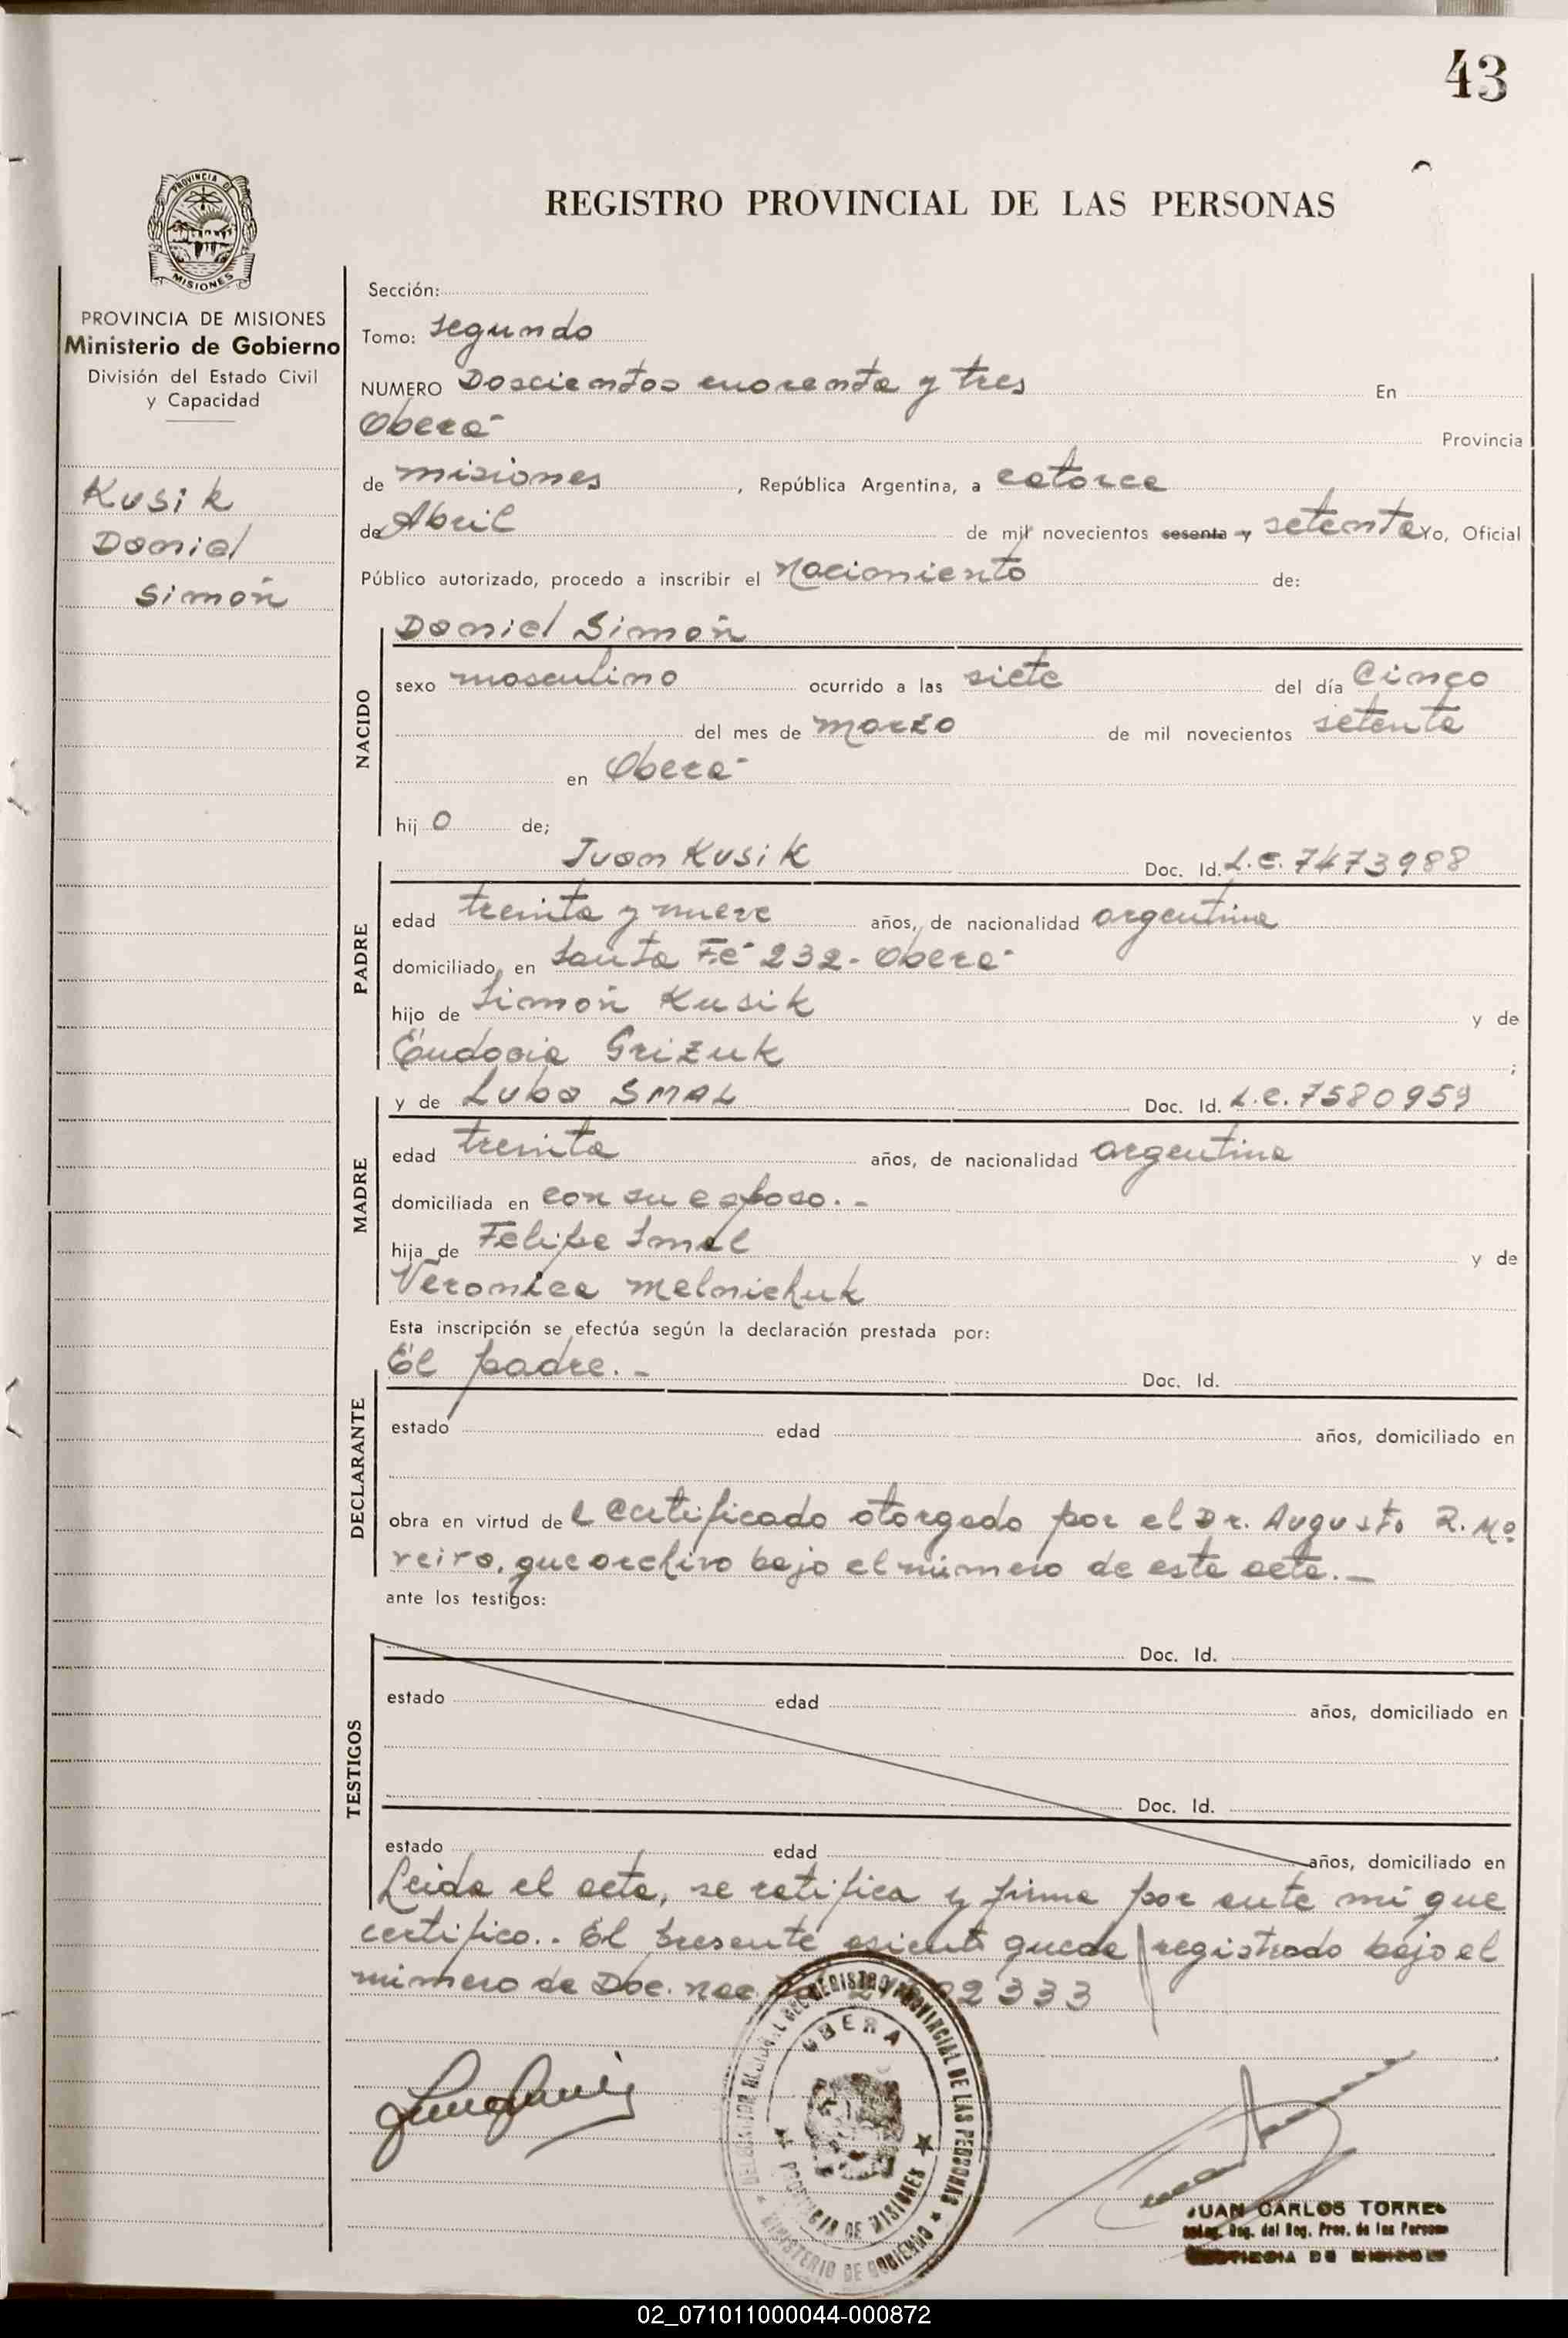 43
REGISTRO PROVINCIAL DE LAS PERSONAS
PROVINCIA DE
MISIONES
PROVINCIA DE MISIONES
Ministerio de Gobierno
División del Estado Civil
y Capacidad
Kusik
Daniel
Simón
Sección:
Tomo: segundo
NUMERO Doscientos cuarenta y tres En
Oberá Provincia
de misiones, República Argentina, a catorce
de Abril de mil novecientos sesenta y setenta Yo, Oficial
Público autorizado, procedo a inscribir el Nacimiento de:
NACIDO
Daniel Simón
sexo masculino ocurrido a las siete del día Cinco
del mes de marzo de mil novecientos setenta
en Oberá
hijo de;
PADRE
Juan Kusik Doc. Id. L.E. 7473988
edad treinta y nueve años, de nacionalidad argentina
domiciliado en Santa Fé 232 - Oberá
hijo de Simón Kusik y de
Eudosia Grizuk ;
MADRE
y de Luba SMAL Doc. Id. L.C. 7580959
edad treinta años, de nacionalidad argentina
domiciliada en con su esposo. -
hija de Felipe Smal y de
Veronica Melnichuk
Esta inscripción se efectúa según la declaración prestada por:
DECLARANTE
El padre. - Doc. Id.
estado edad años, domiciliado en
obra en virtud del Certificado otorgado por el Dr. Augusto R. Mo
reiro, que archivo bajo el número de esta acta. -
ante los testigos:
TESTIGOS
Doc. Id.
estado edad años, domiciliado en
Doc. Id.
estado edad años, domiciliado en
Leida el acta, se ratifica y firma por ante mí que
certifico.. El presente asiento queda registrado bajo el
número de Doc. Nac. 2333
REGISTRO PROVINCIAL DE LAS PERSONAS
OBERA
PROVINCIA DE MISIONES
MINISTERIO DE GOBIERNO
JUAN CARLOS TORRES
Reg. del Reg. Prov. de las Person
02_071011000044-000872